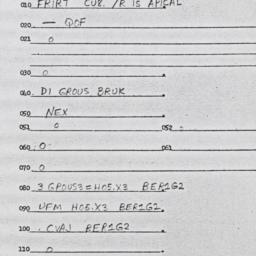 010 FRIRT CU8. /R IS APICAL
020 — QOF
021 0
030 0
040 DI GROUS BRUK
050 NEX
051 0 052
060 0 061
070 0
080 3 GROUS3=HO5.X3 BER1G2
090 UFM HO5.X3 BER1G2
100 . CVAJ BER1G2
110 0